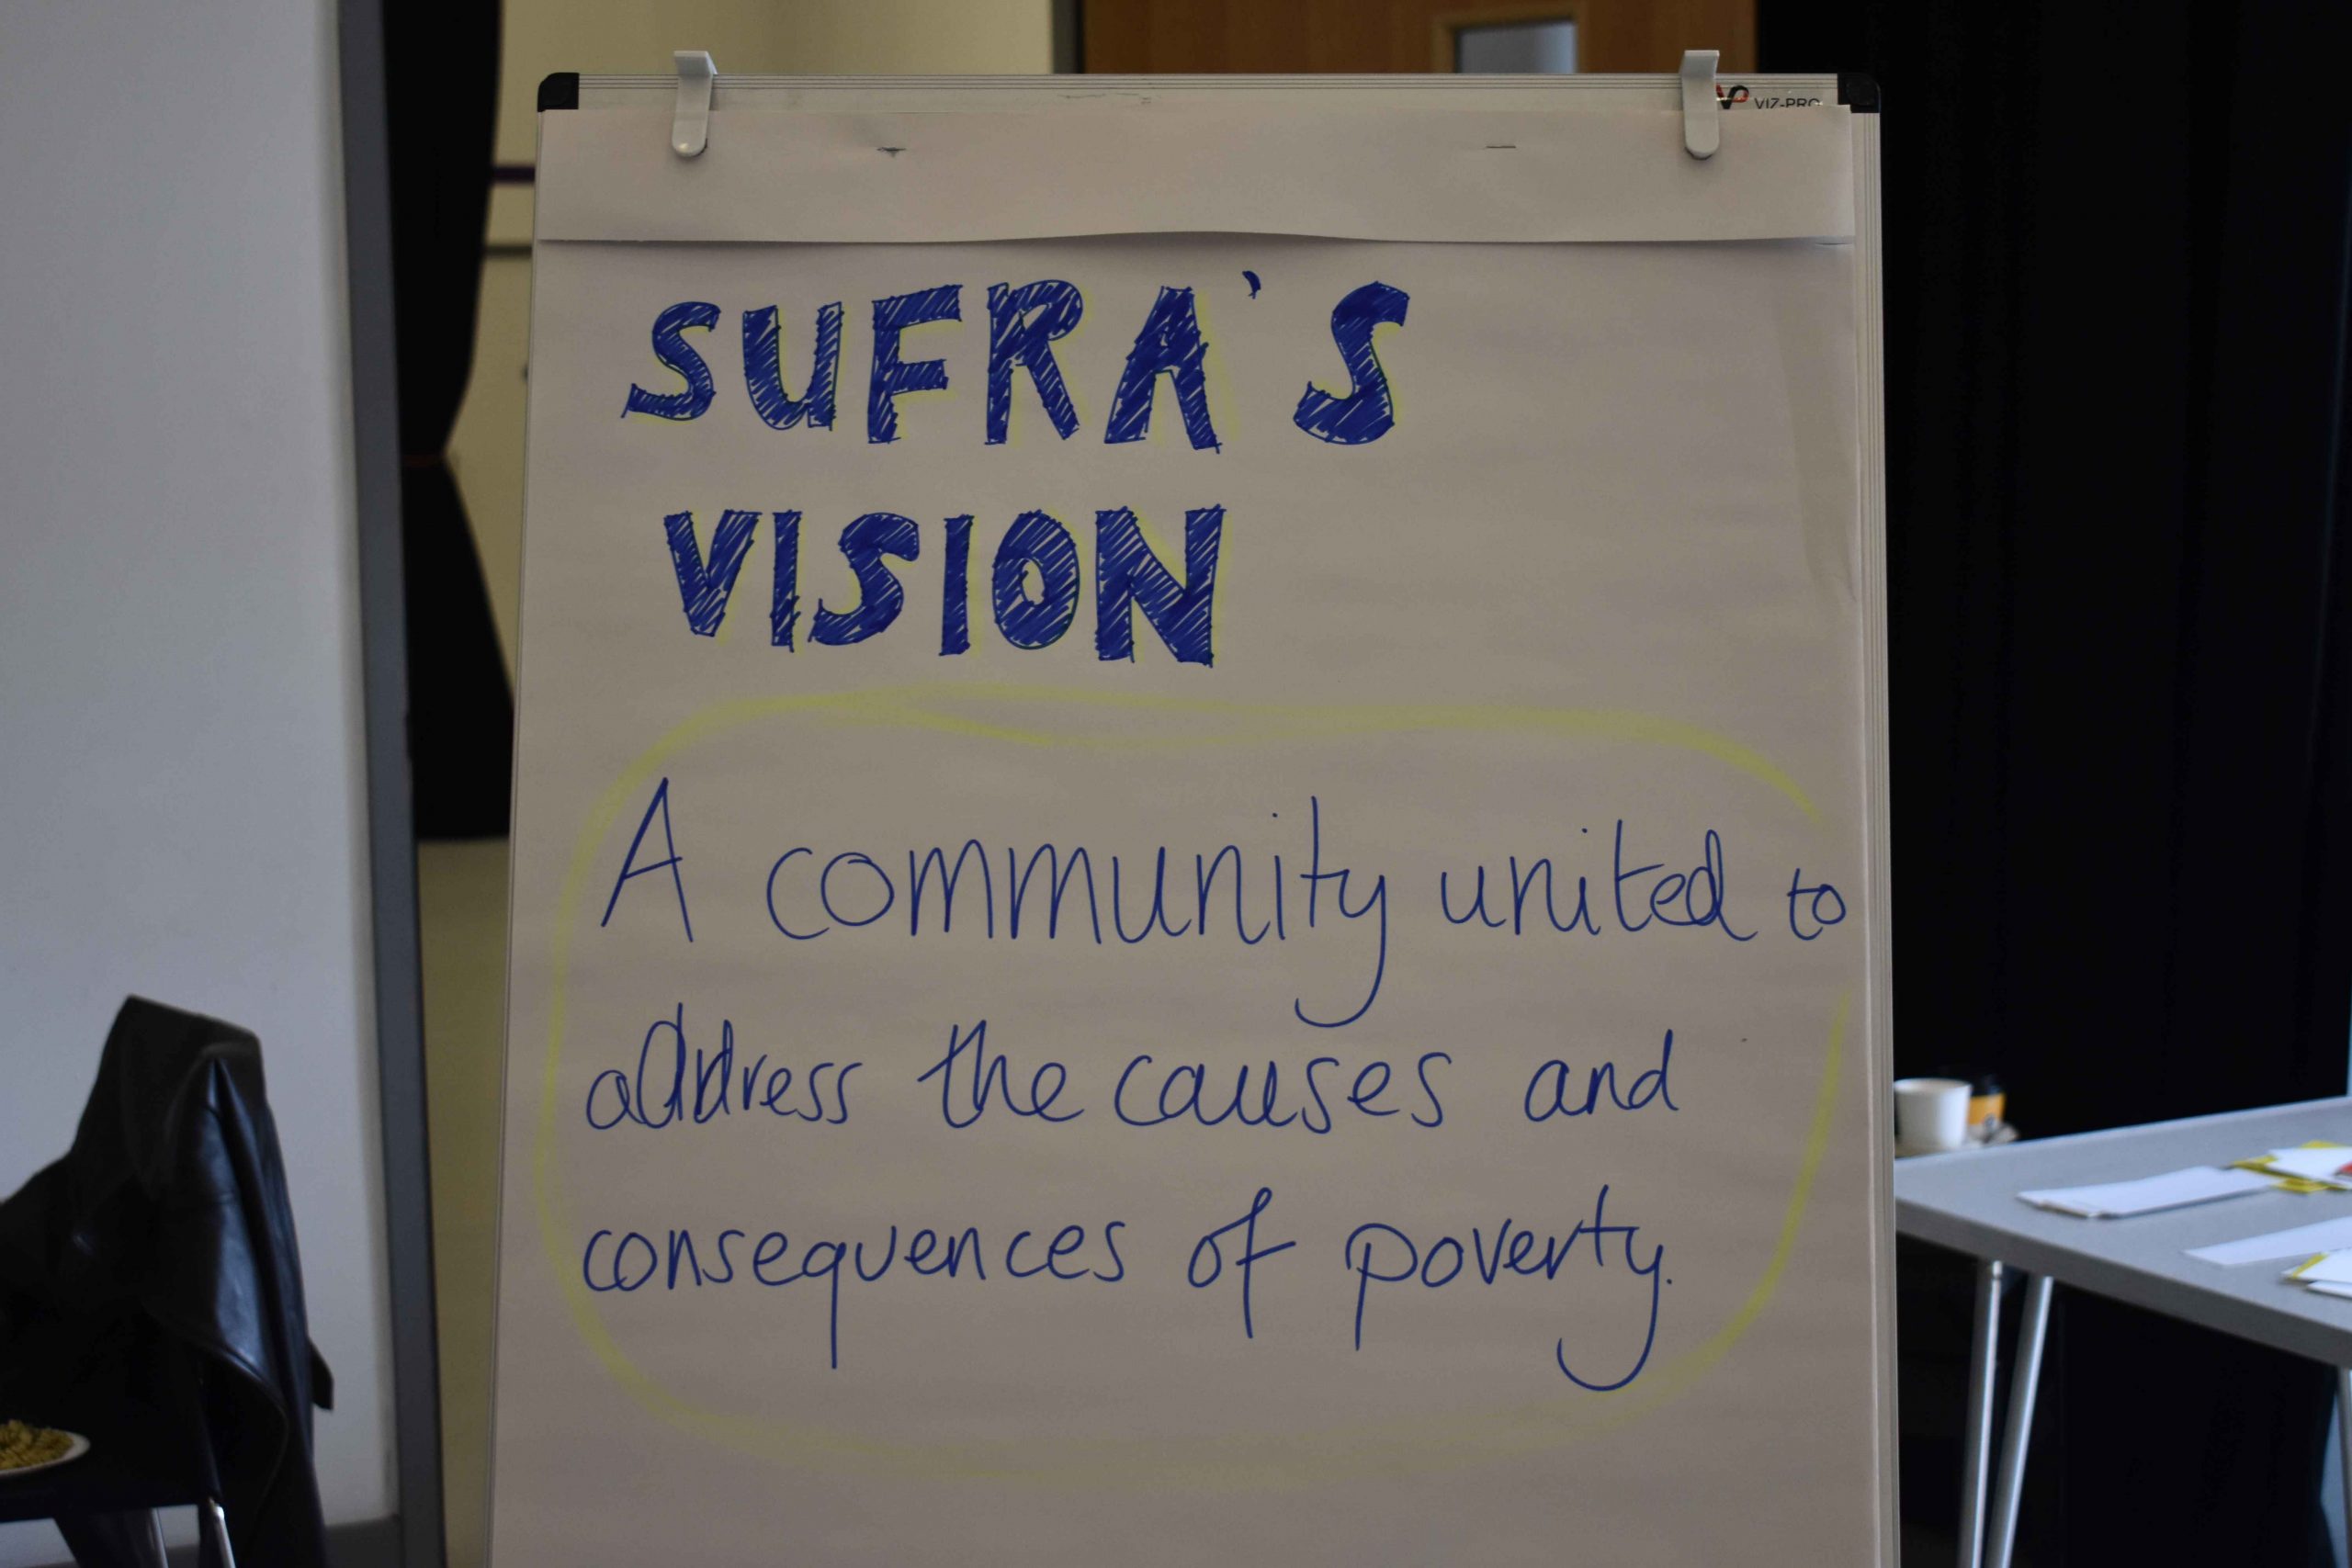 VIZ-PRO
SUFRA'S
VISION
A community united to
address the causes and
consequences of poverty.